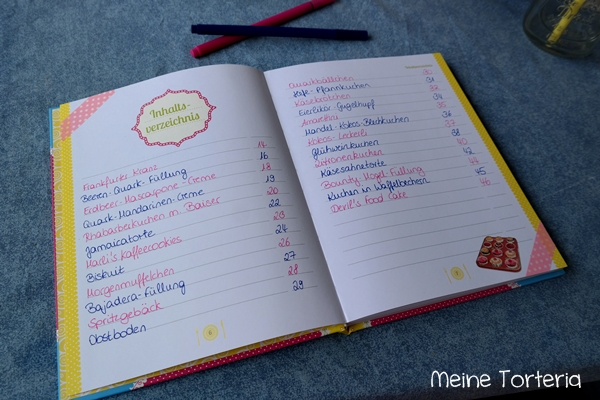 Inhalts-
verzeichnis
Frankfurter Kranz 14
Beeren-Quark-Füllung 16
Erdbeer-Mascarpone-Creme 18
Quark-Mandarinen-Creme 19
Rhabarberkuchen m. Baiser 20
Jamaicatorte 22
Kaffeecookies 23
Biskuit 24
Morgenmuffelchen 26
Bajadera-Füllung 27
Spritzgebäck 28
Obstboden 29
Quarkbällchen 30
Hefe-Pfannkuchen 31
Käsebrötchen 32
Eierlikör-Gugelhupf 34
Amarettini 35
Mandel-Kokos-Blechkuchen 36
Kokos-Leckerli 37
Glühweinkuchen 38
Zitronenkuchen 40
Käsesahnetorte 42
Bounty Vogel-Füllung 44
Kuchen in Waffelbechern 45
Devil's Food Cake 46
Meine Torteria